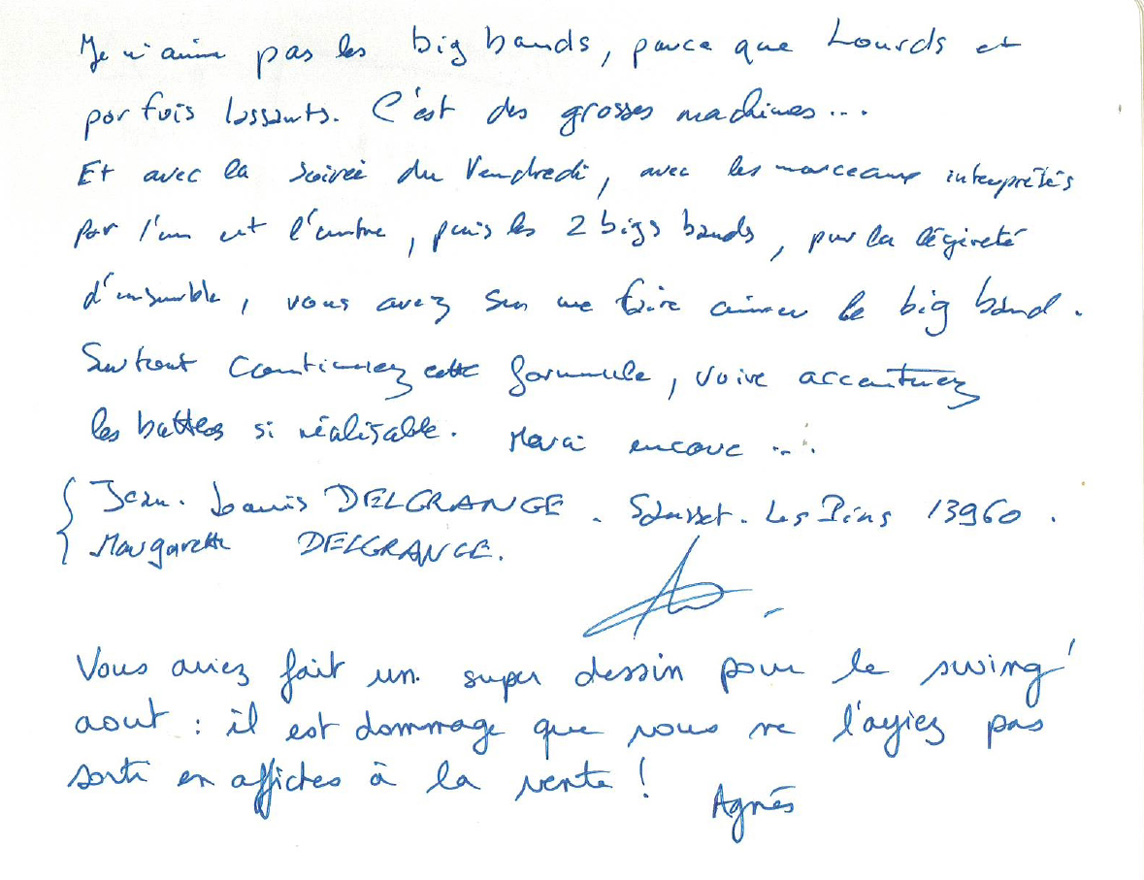 Je n'aime pas les big bands, parce que Lourds et
parfois lassants. C'est des grosses machines...
Et avec la soirée du Vendredi, avec les morceaux interprétés
par l'un et l'autre, puis les 2 bigs bands, par la légèreté
d'ensemble, vous avez su me faire aimer le big band.
Surtout continuez cette formule, voire accentuez
les battles si réalisable. Merci encore ...
Jean-Louis DELGRANGE. Sausset-Les Pins 13960.
Margarette DELGRANGE.
Vous aviez fait un super dessin pour le swing'
aout : il est dommage que vous ne l'ayiez pas
sorti en affiches à la vente !
Agnès